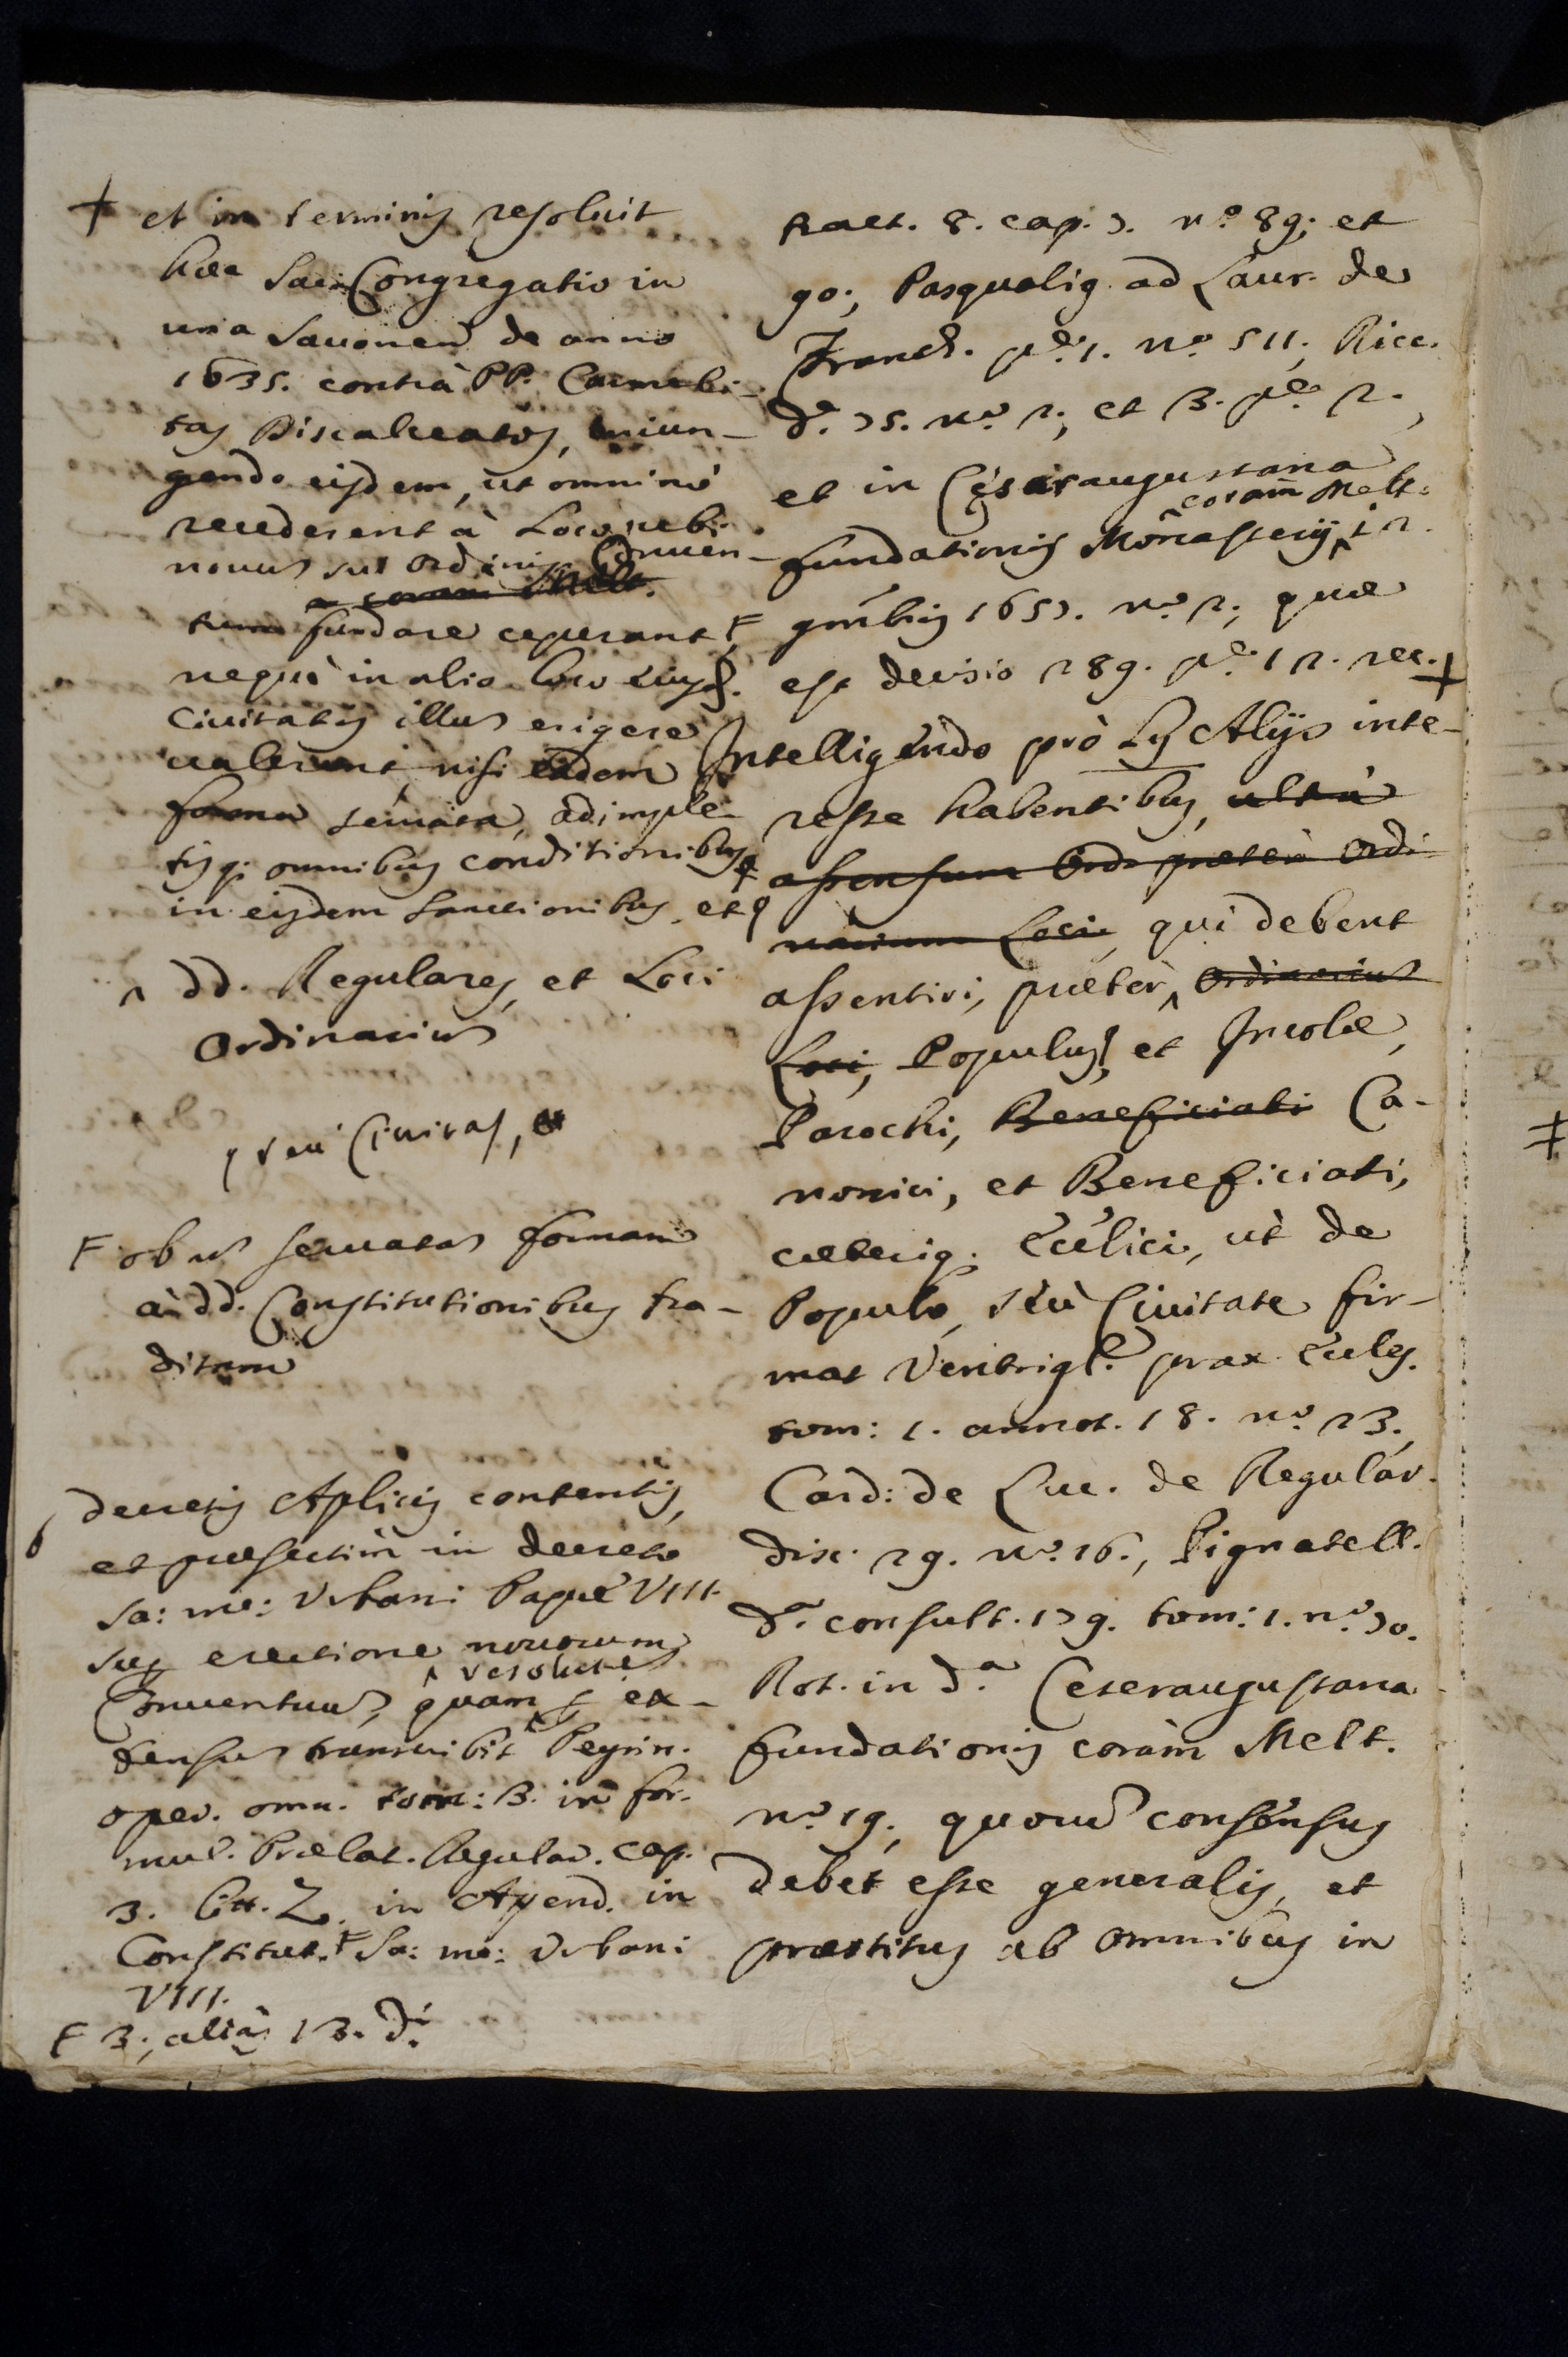 + et in terminis resoluit
hæc Sac: Congregatio in
una Sauonen de anno
1635. contrà PP. Carmeli-
tas Discalceatos, iniun-
gendo eisdem, ut omninò
recederent à Loco, ubi
nouum sui Ordinis Conuen-
a coram Melt.
tum fundare ceperant F
nequè in alio loco eiusd.
Ciuitatis illum erigere
ualerent, nisi eadem
forma seruata, adimple-
tisq; omnibus conditionibus
in eisdem Sanctionibus, et
^ dd. Regulares, et Loci
Ordinarium
seu Ciuitas, et
F ob non seruatam formam
à dd. Constitutionibus tra-
ditam
decretis Aplicis contentis,
et præsertim in decreto
Sa: me: Urbani Papæ VIII.
sup erectione nouorum
^ resolute
Conuentuum, quam ex-
tensum transcribit Peyrin.
oper. omn. tom: 3. in for-
mul. Prælat. Regular. cap.
3. litt. Z. in Apend. in
Constitut. F Sa: me: Urbani
VIII.
F 3., aliàs 13. d.i
tract. 8. cap. 7. n.o 89; et
90; Pasqualig. ad Laur. de
Franch. p.e 1. n.o 511; Ricc.
d.a 75. n.o 2; et 3. p.e 2.,
et in Cesaraugustana
coràm Melt.
fundationis Monasterij ^ 12.
gmbris 1657. n.o 2; quæ
est decisio 289. p.e 12. rec. +
Intelligendo prò Ly Alijs inte-
resse habentibus, ultrà
assensum Ord præter Ordi-
narium Loci, qui debent
assentiri, præter ^ Ordinarium
Loci, Populus, et Incolæ,
Parochi, Beneficiati Ca-
nonici, et Beneficiati,
cæteriq; Ecclici, ut de
Populo, seù Ciuitate fir-
mat Ventrigl. prax. Eccles.
tom: 1. annot. 18. n.o 23.,
Card: de Luc. de Regular.
disc. 29. n.o 16., Pignatell.
d.a consult. 179. tom: 1. n.o 70.
Rot. in d.a Ceseraugustana
fundationis coràm Melt.
n.o 19., quorum consensus
debet esse generalis, et
præstitus ab omnibus in